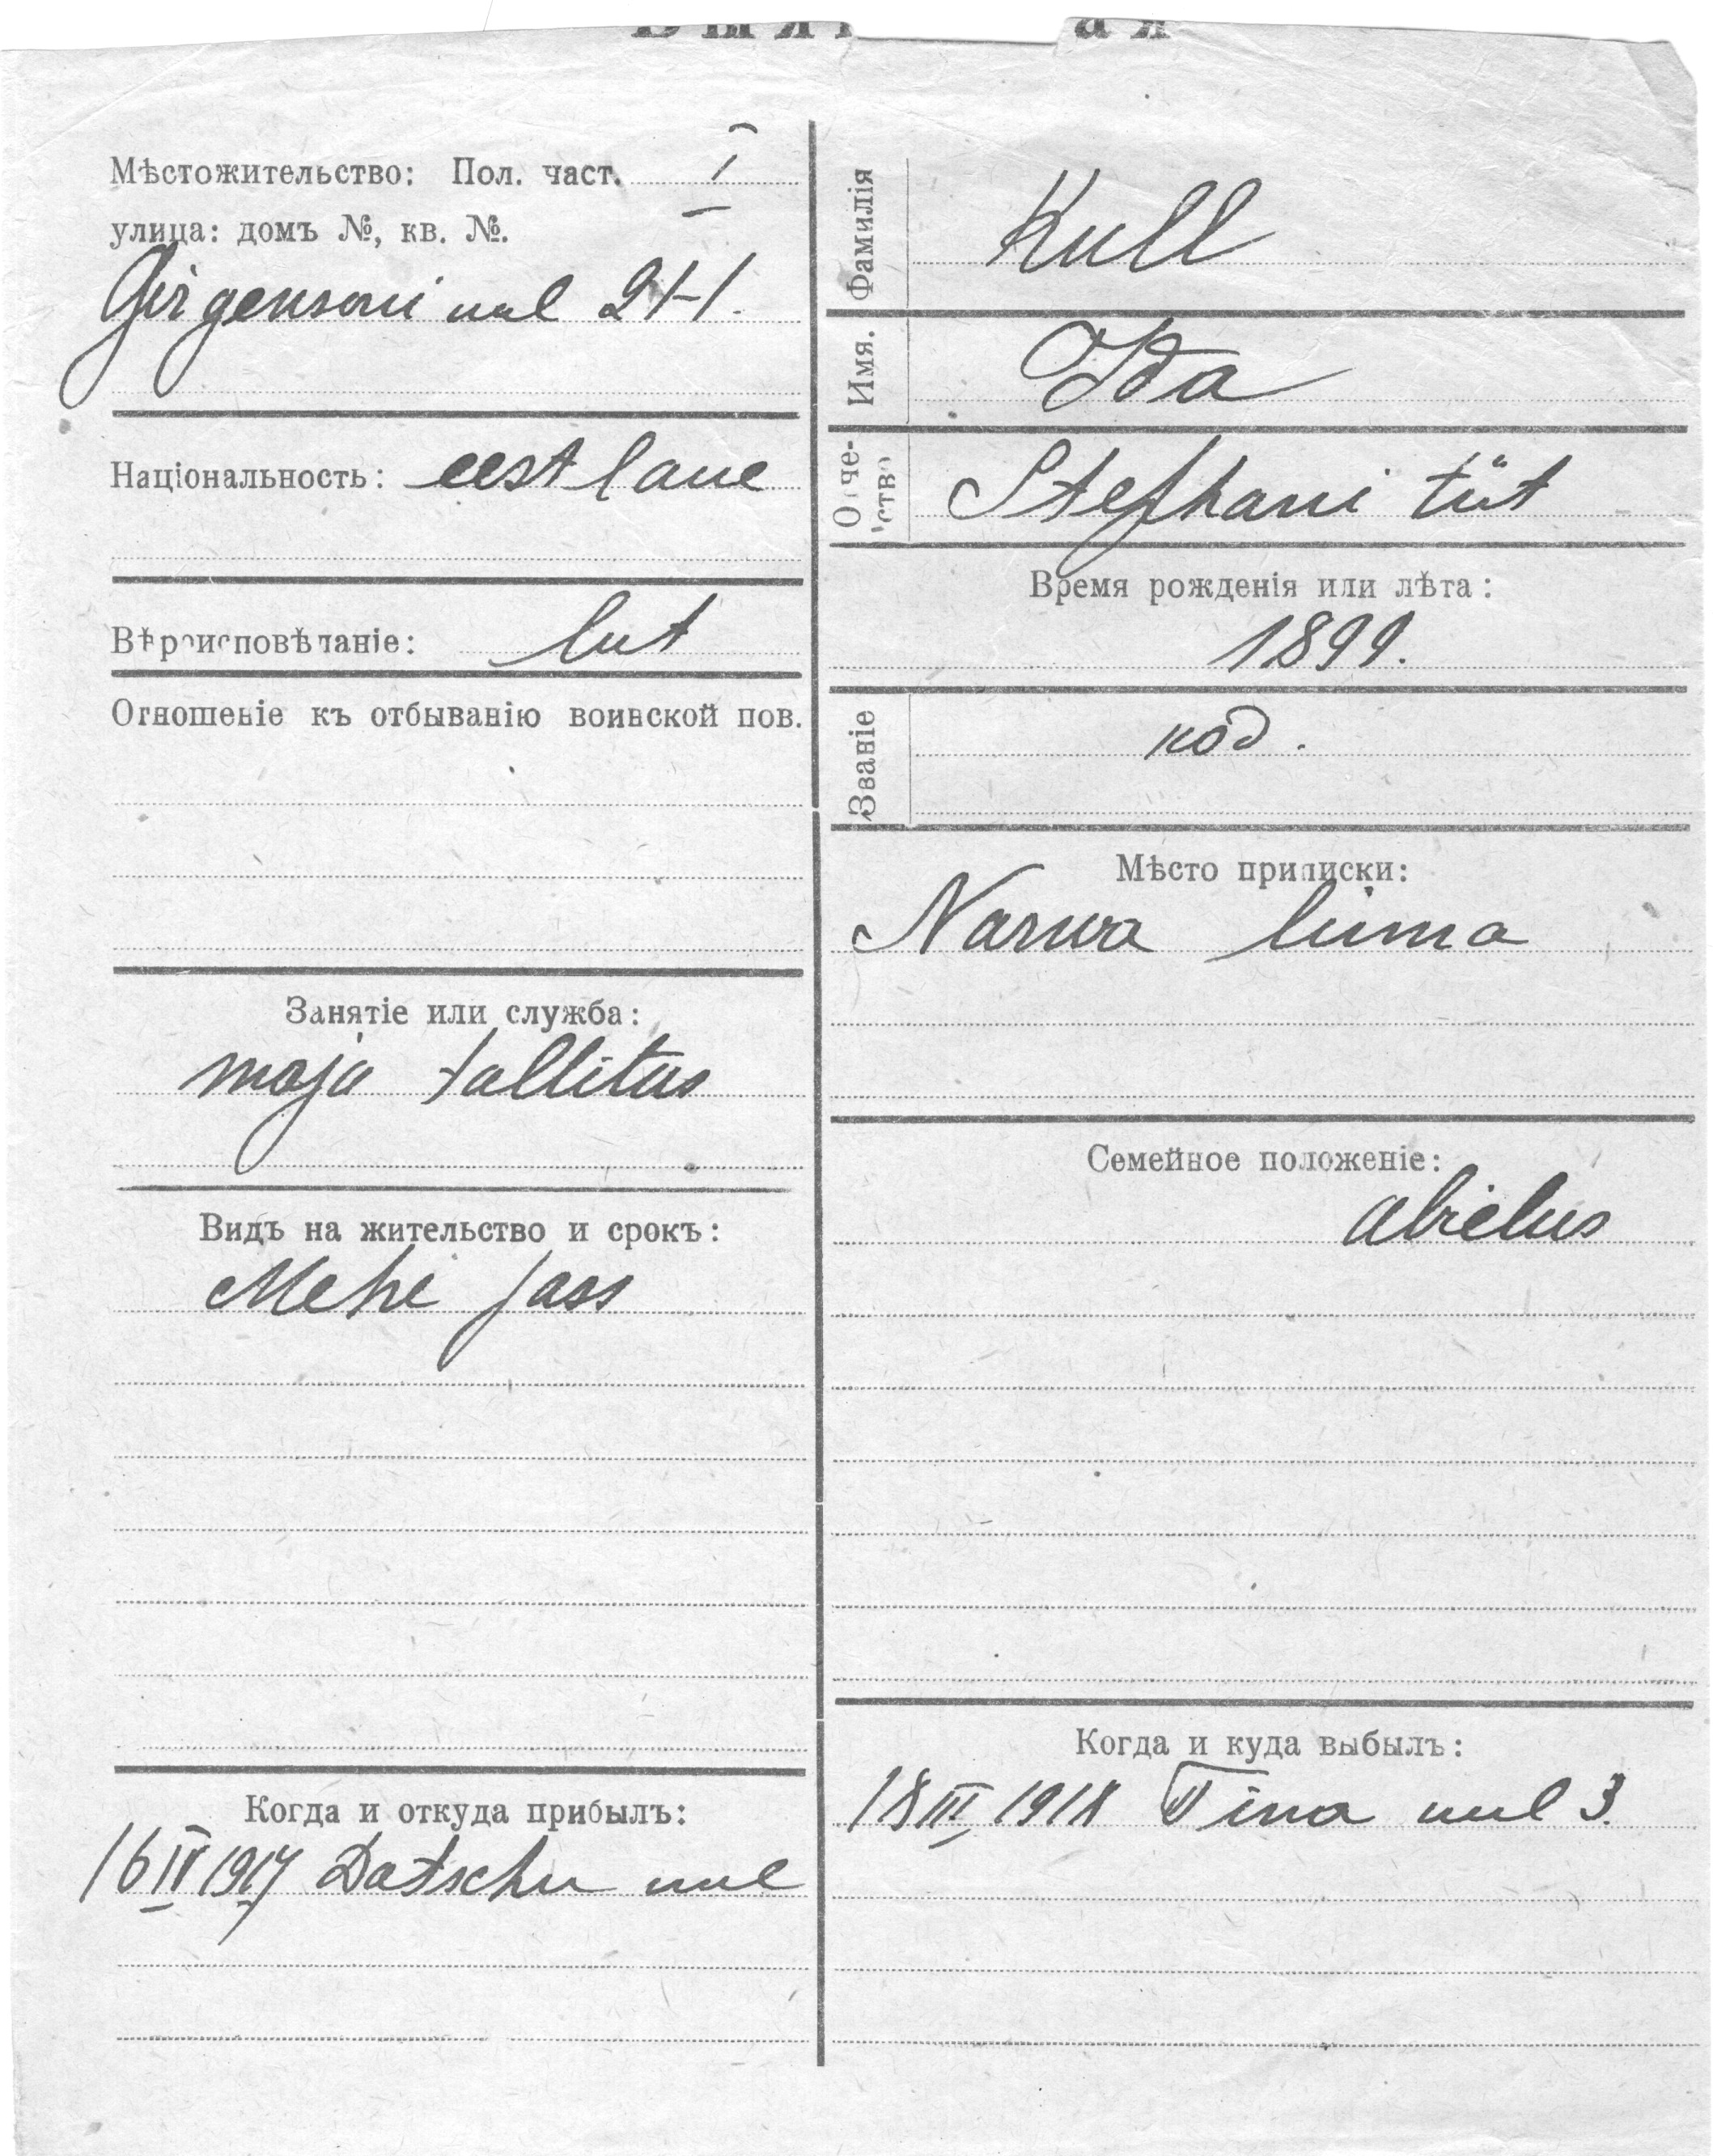 Мѣстожительство: Пол. част. I
улица: домъ №, кв. №.
Girgensoni uul 21-1.
Національность: eestlane
Вѣроисповѣданіе: lut
Отношеніе къ отбыванію воинской пов.
Занятіе или служба:
maja tallitus
Видъ на жительство и срокъ:
Mehe pass
Когда и откуда прибылъ:
16 IV 1917 Datschu uul
Фамилія Kull
Имя. Ida
Отче-
ство Stephani tüt
Время рожденія или лѣта:
1899.
Званіе
код.
Мѣсто приписки:
Narwa linna
Семейное положеніе:
abielus
Когда и куда выбылъ:
18 III 1918 Tina uul 3.